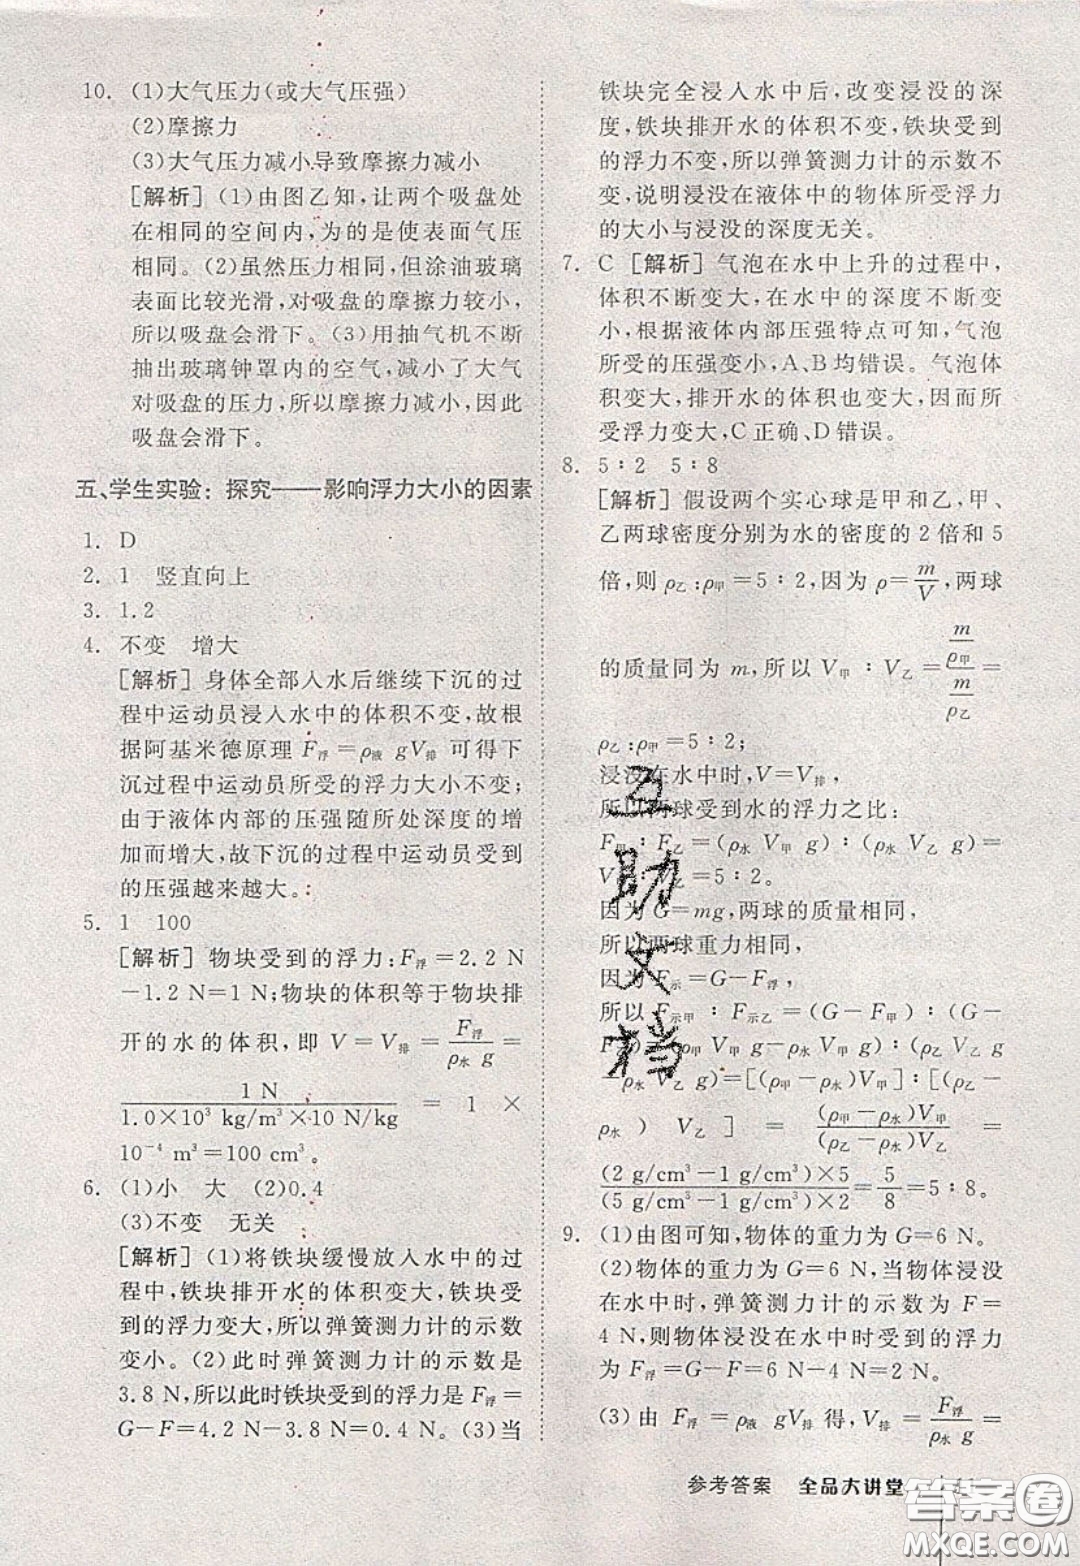 10. (1)大气压力(或大气压强)
(2)摩擦力
(3)大气压力减小导致摩擦力减小
[解析] (1)由图乙知,让两个吸盘处
在相同的空间内,为的是使表面气压
相同。(2)虽然压力相同,但涂油玻璃
表面比较光滑,对吸盘的摩擦力较小,
所以吸盘会滑下。(3)用抽气机不断
抽出玻璃钟罩内的空气,减小了大气
对吸盘的压力,所以摩擦力减小,因此
吸盘会滑下。
五、学生实验：探究——影响浮力大小的因素
1. D
2. 1 竖直向上
3. 1.2
4. 不变 增大
[解析] 身体全部入水后继续下沉的过
程中运动员浸入水中的体积不变,故根
据阿基米德原理 F浮=ρ液 gV排 可得下
沉过程中运动员所受的浮力大小不变;
由于液体内部的压强随所处深度的增
加而增大,故下沉的过程中运动员受到
的压强越来越大。
5. 1 100
[解析] 物块受到的浮力:F浮=2.2 N
-1.2 N=1 N;物块的体积等于物块排
开的水的体积,即 V=V排=F浮/(ρ水 g)=
1 N/(1.0×10³ kg/m³×10 N/kg) = 1 ×
10⁻⁴ m³=100 cm³。
6. (1)小 大 (2)0.4
(3)不变 无关
[解析] (1)将铁块缓慢放入水中的过
程中,铁块排开水的体积变大,铁块受
到的浮力变大,所以弹簧测力计的示数
变小。(2)此时弹簧测力计的示数是
3.8 N,所以此时铁块受到的浮力是 F浮=
G-F=4.2 N-3.8 N=0.4 N。(3)当
铁块完全浸入水中后,改变浸没的深
度,铁块排开水的体积不变,铁块受到
的浮力不变,所以弹簧测力计的示数不
变,说明浸没在液体中的物体所受浮力
的大小与浸没的深度无关。
7. C [解析] 气泡在水中上升的过程中,
体积不断变大,在水中的深度不断变
小,根据液体内部压强特点可知,气泡
所受的压强变小,A、B均错误。气泡体
积变大,排开水的体积也变大,因而所
受浮力变大,C正确、D错误。
8. 5∶2 5∶8
[解析] 假设两个实心球是甲和乙,甲、
乙两球密度分别为水的密度的 2 倍和 5
倍,则 ρ乙:ρ甲=5∶2,因为 ρ=m/V,两球
的质量同为 m,所以 V甲∶V乙=(m/ρ甲)/(m/ρ乙)=
ρ乙:ρ甲=5∶2;
浸没在水中时,V=V排,
所以两球受到水的浮力之比:
F甲∶F乙=(ρ水 V甲 g)∶(ρ水 V乙 g)=
V甲∶V乙=5∶2。
因为G=mg,两球的质量相同,
所以两球重力相同,
因为 F示=G-F浮,
所以 F示甲∶F示乙=(G-F甲)∶(G-
F乙)=(ρ甲 V甲 g-ρ水 V甲 g)∶(ρ乙 V乙 g
-ρ水 V乙 g)=[(ρ甲-ρ水)V甲]∶[(ρ乙-
ρ水)V乙]=(ρ甲-ρ水)V甲/(ρ乙-ρ水)V乙=
(2 g/cm³-1 g/cm³)×5/(5 g/cm³-1 g/cm³)×2=5/8=5∶8。
9. (1)由图可知,物体的重力为 G=6 N。
(2)物体的重力为 G=6 N,当物体浸没
在水中时,弹簧测力计的示数为 F=
4 N,则物体浸没在水中时受到的浮力
为 F浮=G-F=6 N-4 N=2 N。
(3)由 F浮=ρ液 gV排得,V排=F浮/(ρ水 g)=
互
助
文
档
参考答案 全品大讲堂
答案圈
MXQE.COM